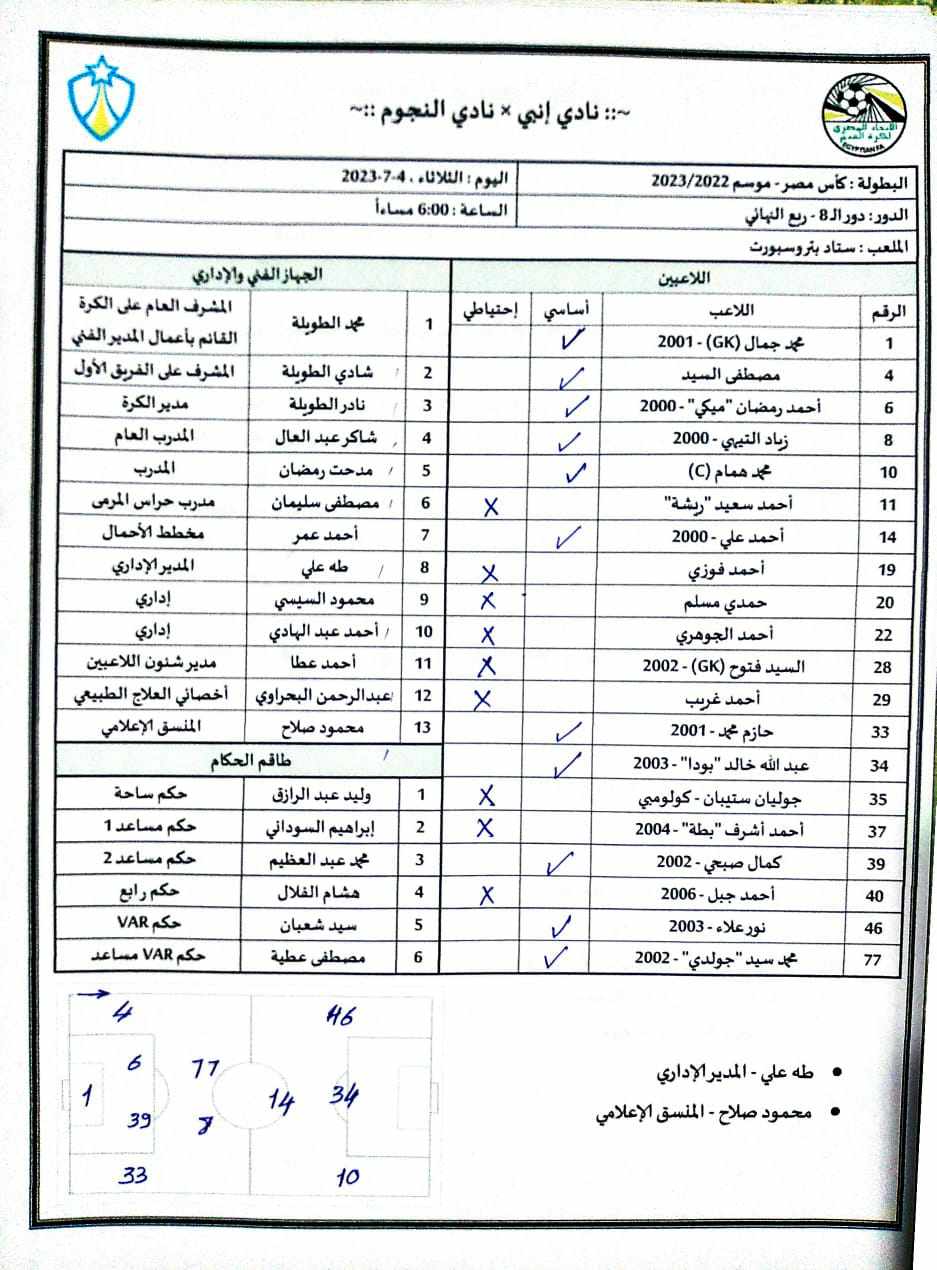 ~:: نادي إنبي × نادي النجوم ::~
الاتحاد المصري
لكرة القدم
EGYPTIAN FA
البطولة : كأس مصر - موسم 2023/2022
اليوم : الثلاثاء ، 4-7-2023
الدور : دور الـ 8 - ربع النهائي
الساعة : 6:00 مساءاً
الملعب : ستاد بتروسبورت
اللاعبين
الرقم اللاعب أساسي إحتياطي
1 محمد جمال (GK) - 2001 ✓
4 مصطفى السيد ✓
6 أحمد رمضان "ميكي" - 2000 ✓
8 زياد التيهي - 2000 ✓
10 محمد همام (C) ✓
11 أحمد سعيد "ريشة" X
14 أحمد علي - 2000 ✓
19 أحمد فوزي X
20 حمدي مسلم X
22 أحمد الجوهري X
28 السيد فتوح (GK) - 2002 X
29 أحمد غريب X
33 حازم محمد - 2001 ✓
34 عبد الله خالد "بودا" - 2003 ✓
35 جوليان ستيبان - كولومبي X
37 أحمد أشرف "بطة" - 2004 X
39 كمال صبحي - 2002 ✓
40 أحمد جبل - 2006 X
46 نور علاء - 2003 ✓
77 محمد سيد "جولدي" - 2002 ✓
الجهاز الفني والإداري
1 محمد الطويلة المشرف العام على الكرة
القائم بأعمال المدير الفني
2 شادي الطويلة المشرف على الفريق الأول
3 نادر الطويلة مدير الكرة
4 شاكر عبد العال المدرب العام
5 مدحت رمضان المدرب
6 مصطفى سليمان مدرب حراس المرمى
7 أحمد عمر مخطط الأحمال
8 طه علي المدير الإداري
9 محمود السيسي إداري
10 أحمد عبد الهادي إداري
11 أحمد عطا مدير شئون اللاعبين
12 عبدالرحمن البحراوي أخصائي العلاج الطبيعي
13 محمود صلاح المنسق الإعلامي
طاقم الحكام
1 وليد عبد الرازق حكم ساحة
2 إبراهيم السوداني حكم مساعد 1
3 محمد عبد العظيم حكم مساعد 2
4 هشام الفلال حكم رابع
5 سيد شعبان حكم VAR
6 مصطفى عطية حكم VAR مساعد
4 46
6 77
1 14 34
39 8
33 10
• طه علي - المدير الإداري
• محمود صلاح - المنسق الإعلامي